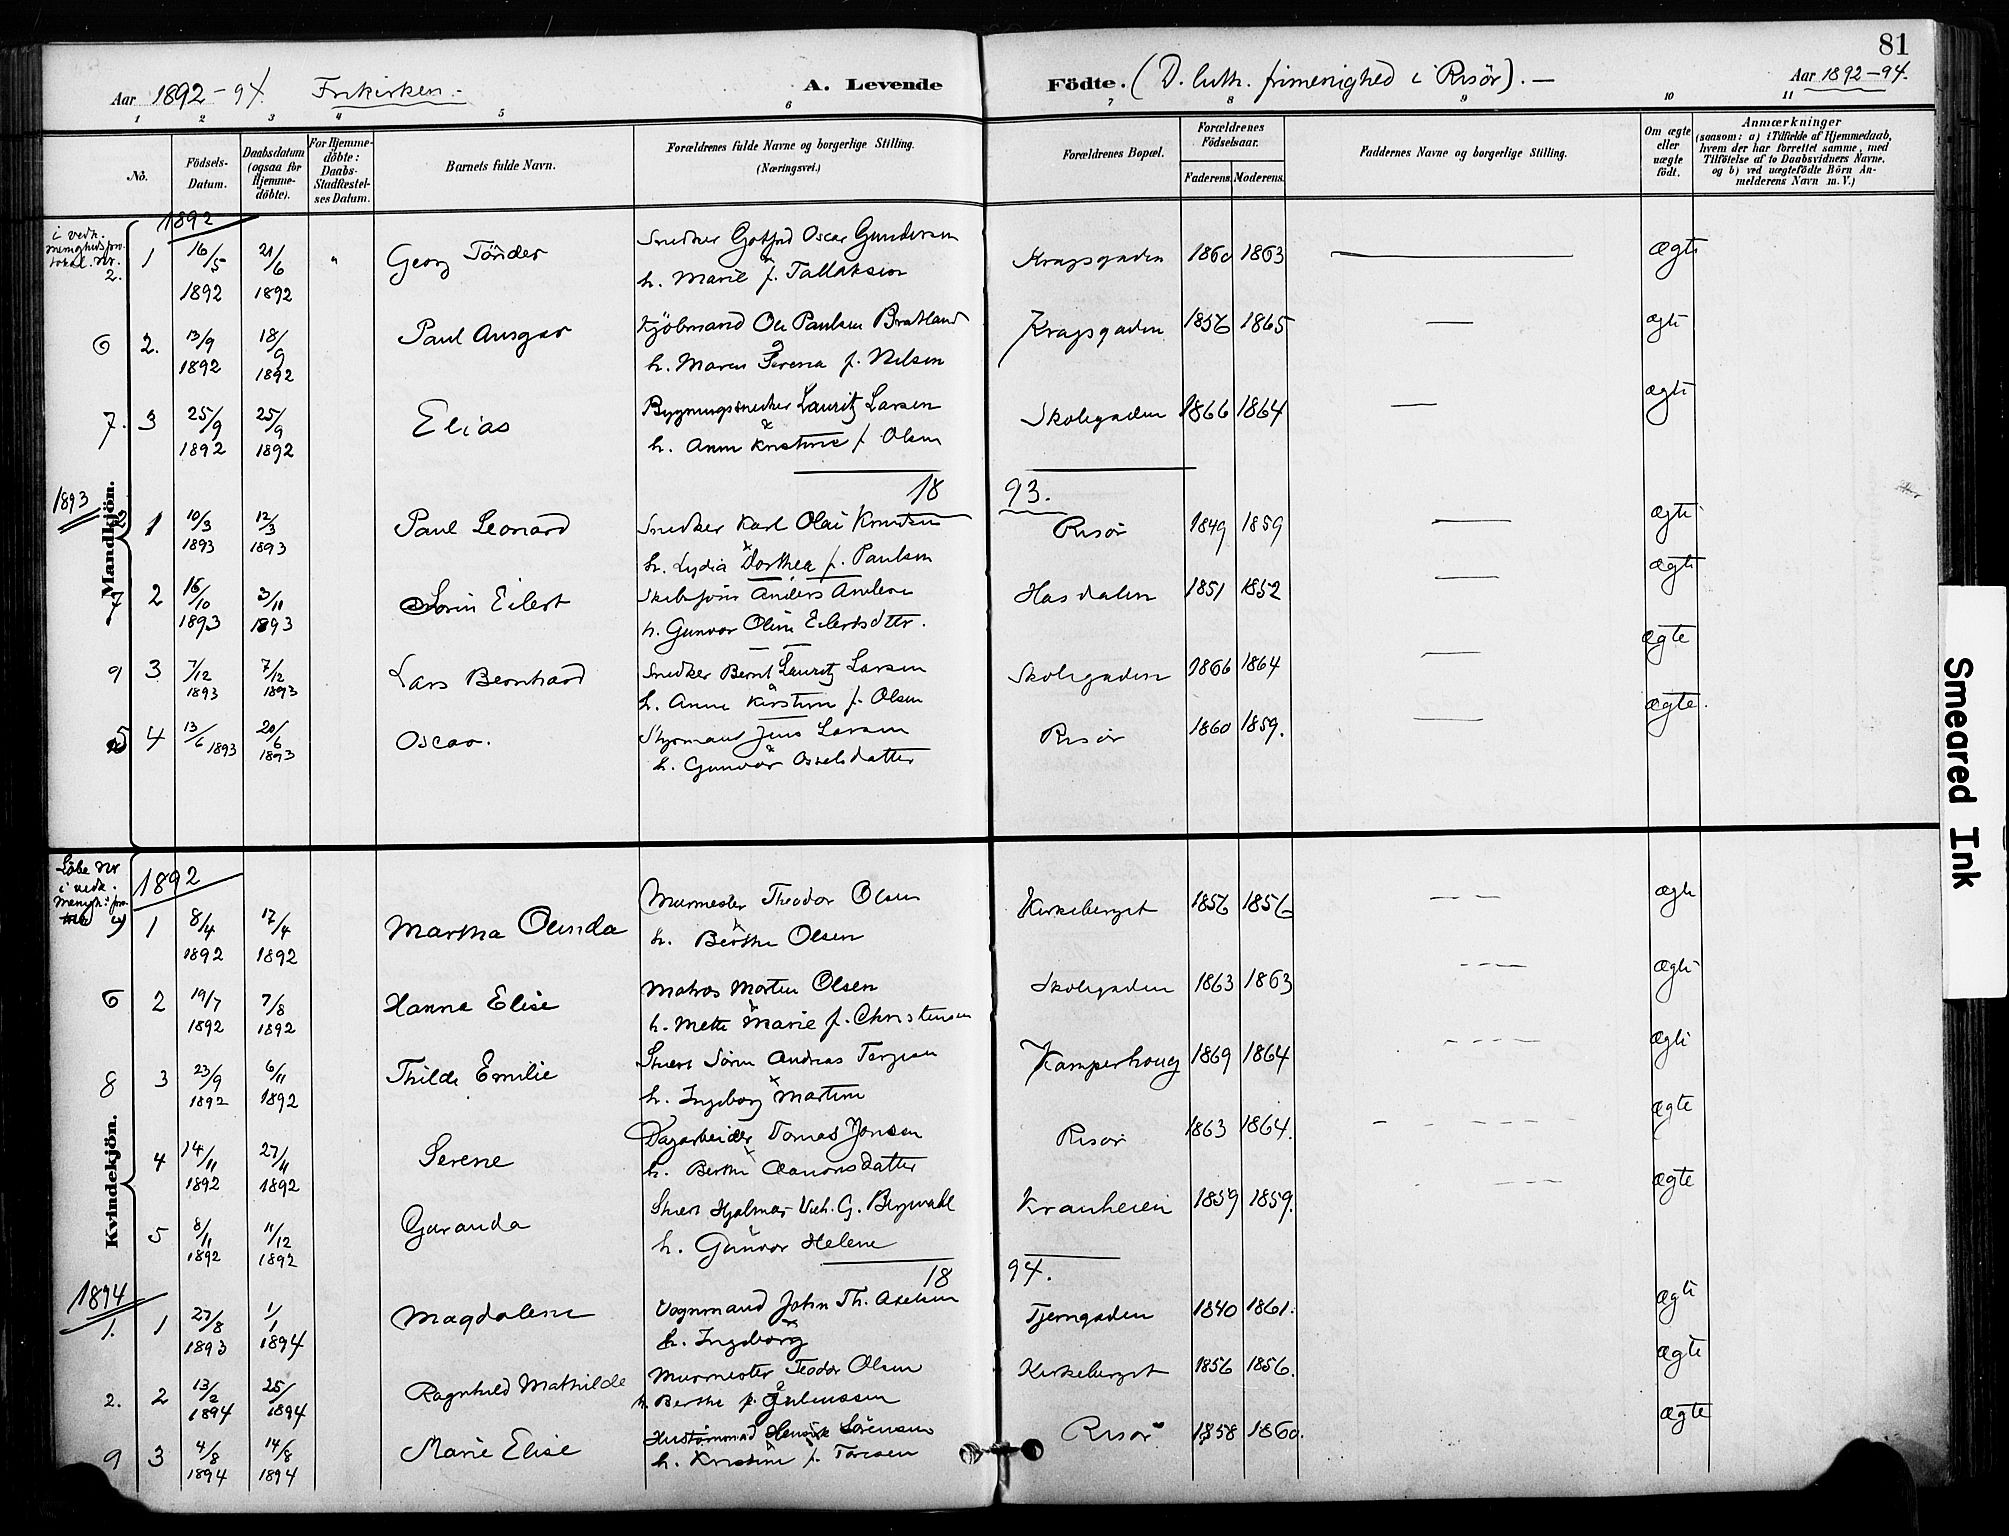 81
Aar 1892-94. Frikirken. A. Levende Födte. (D. luth. frimenighed i Risör). — Aar 1892-94.
1 2 3 4 5 6 7 8 9 10 11
No.
Födsels-Datum.
Daabsdatum (ogsaa for Hjemme-döbte).
For Hjemme-döbte: Daabs-Stadfæstel-ses Datum.
Barnets fulde Navn.
Forældrenes fulde Navne og borgerlige Stilling. (Næringsvei.)
Forældrenes Bopæl.
Forældrenes Födselsaar.
Faderens. Moderens.
Faddernes Navne og borgerlige Stilling.
Om ægte eller uægte födt.
Anmærkninger
(saasom: a) i Tilfælde af Hjemmedaab,
hvem der har forrettet samme, med
Tilföielse af to Daabsvidners Navne,
og b) ved uægtefödte Börn An-
melderens Navn m. V.)
Mandkjön.
1892
i vedk. menighedspro-tokol. Nr.
2. 1 16/5 1892 21/6 1892 " Georg Tönder
Snedker Gotfred Oscar Gundersen
h. Marie f. Tallaksen
Kragsgaden 1860 1863 — ægte
6 2. 13/9 1892 18/9 1892 Paul Ansgar
Kjöbmand Ole Paulsen Bratland
h. Maren Serena f. Nilsen
Kragsgaden 1856 1865 — ægte
7. 3 25/9 1892 25/9 1892 Elias
Bygningssnedker Lauritz Larsen
h. Anne Kristine f. Olsen
Skolegaden 1866 1864 — ægte
18 93.
1893
1 10/3 1893 12/3 1893 Paul Leonard
Snedker Karl Olai Knudsen
h. Lydia Dorthea f. Paulsen
Risör 1849 1859 — ægte
7 2 16/10 1893 3/11 1893 Sörin Eilert
Anders
h. Gunvor Oline Eilertsdtr.
Hasdalen 1851 1852 — ægte
9 3 7/12 1893 7/12 1893 Lars Bernhard
Snedker Bernt Lauritz Larsen
h. Anne Kirstine f. Olsen
Skolegaden 1866 1864 — ægte
5 4 13/6 1893 20/6 1893 Oscar.
Styrmand Jens Larsen
h. Gunvor
Risör 1860 1859. — ægte.
Kvindekjön.
Löbe Nr i vedk. menigh: pro-
1892
1 8/4 1892 17/4 1892 Martha Olinda
Murmester Theodor Olsen
h. Berthe Olsen
Kirkeberget 1856 1856 — ægte
6 2 19/7 1892 7/8 1892 Hanna Elise
Matros Morten Olsen
h. Mette Marie f. Christensen
Skolegaden 1863 1863 — ægte
8 3 23/9 1892 6/11 1892 Thilde Emilie
Skuers Sörin Andreas Terjesen
h. Ingeborg Martine
Kamperhoug 1869 1864 — ægte
4 14/11 1892 27/11 1892 Serene
Dagarbeider Tomas Jonsen
h. Berthe Aanonsdatter
Risör 1863 1864. — ægte
5 8/11 1892 11/12 1892 Guranda
Skuers Hjalmar Vilh. G. Bergwahl
h. Gunvor Helene
Kranheien 1859 1859. — ægte
18 94.
1894
1. 1 27/8 1893 1/1 1894 Magdalene
Vognmand John Th. Axelsen
h. Ingeborg
Tjerngaden 1840 1861. ægte
2. 2 13/2 1894 25/ 1894 Ragnhild Mathilde
Murmester Teodor Olsen
h. Berthe f. Juliussen
Kirkeberget 1856 1856. ægte
9 3 4/8 1894 14/8 1894 Marie Elise
Henrik Sörensen
h. Kristine f. Toresen
Risör 1858 1860. ægte
Smeared Ink